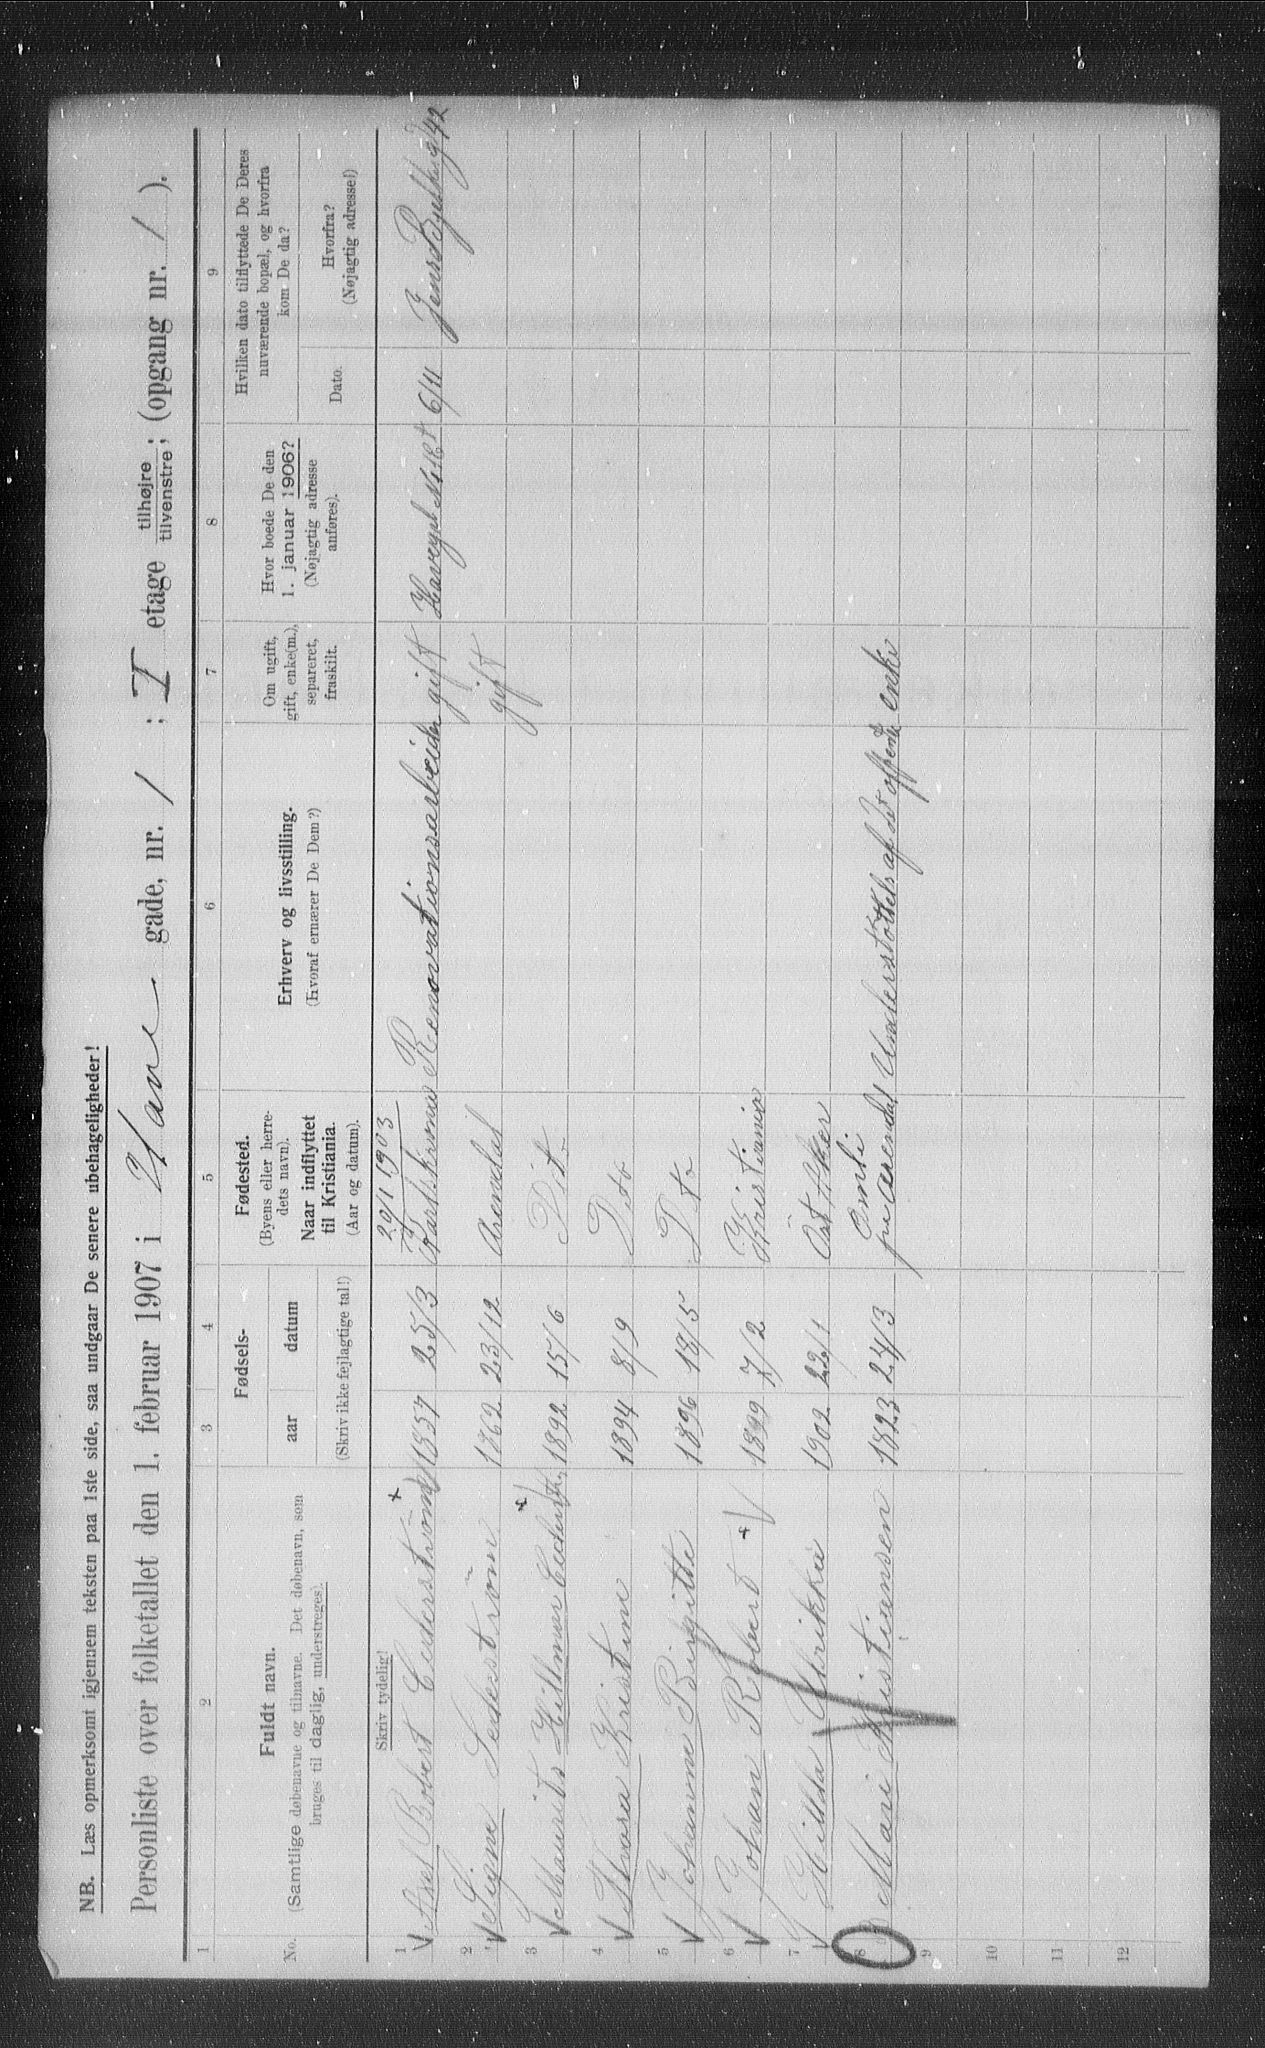 NB. Læs opmerksomt igjennem teksten paa 1ste side, saa undgaar De senere ubehageligheder!
Personliste over folketallet den 1. februar 1907 i Have gade, nr. 1 ; I etage tilhøjre / tilvenstre ; (opgang nr. 1 ).
1 2 3 4 5 6 7 8 9
No.
Fuldt navn.
(Samtlige døbenavne og tilnavne. Det døbenavn, som
bruges til daglig, understreges).
Fødsels-
aar datum
(Skriv ikke fejlagtige tal!)
Fødested.
(Byens eller herre-
dets navn).
Naar indflyttet
til Kristiania.
(Aar og datum).
Erhverv og livsstilling.
(hvoraf ernærer De Dem?)
Om ugift,
gift, enke(m.),
separeret,
fraskilt.
Hvor boede De den
1. januar 1906?
(Nøjagtig adresse
anføres).
Hvilken dato tilflyttede De Deres
nuværende bopæl, og hvorfra
kom De da?
Dato.
Hvorfra?
(Nøjagtig adresse!)
Skriv tydelig!
20/1 1903
1 Axel Robert Cederström 1857 25/3 Karlskrona Renovationsarbeider gift 6/11
2 Signe Sederström 1862 23/12 Arendal gift
3 Mauritz Hillmar 1892 15/6 Dito
4 Thora Kristine 1894 8/9 Dito
5 Johanne Birgitte 1896 18/5 Dto
6 Johan Robert 1899 7/2 Kristiania
7 Hilda Ulrikke 1902 22/1 Öst Aker
8 Mari Kristiansen 1823 24/3 Omli
Arendal Understöttels af det offentl enke
9
10
11
12